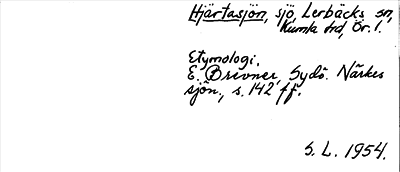 Hjärtasjön, sjö, Lerbäcks sn,
Kumla hd, Ör. l.
Etymologi.
E. Brevner, Sydö. Närkes
sjön., s. 142 ff.
S. L. 1954.